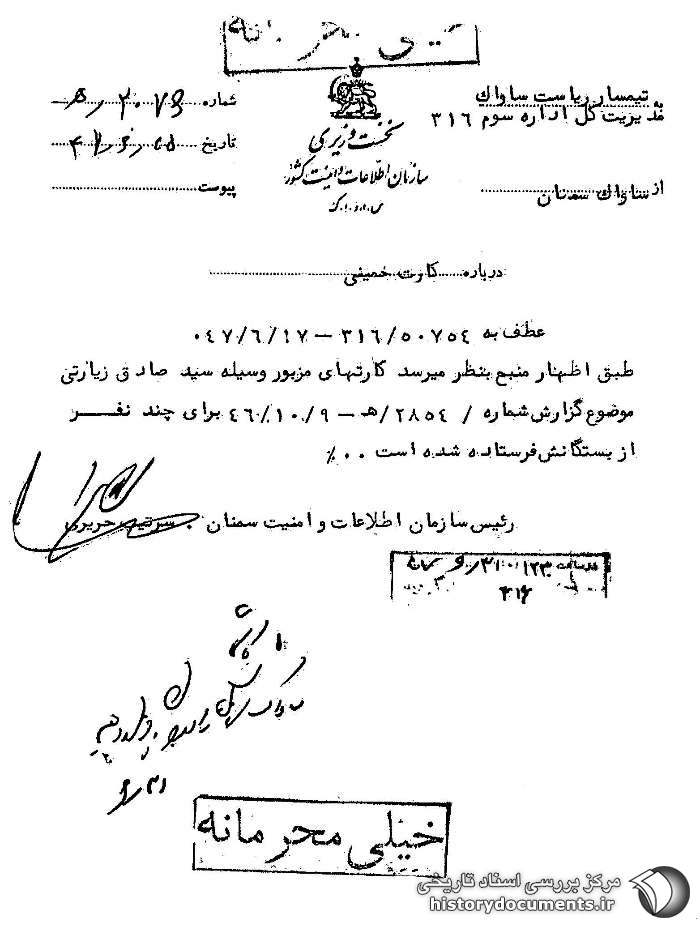 خیلی محرمانه
به تیمسار ریاست ساواك
مدیریت کل اداره سوم ۳۱۶
از ساواك سمنان
نخست وزیری
سازمان اطلاعات و امنیت کشور
س.ا.و.ا.ك
شماره ۲۰۷۹/ﻫ
تاریخ
پیوست
درباره کارت خمینی
عطف به ۳۱۶/۵۰۷۵٤ – ۰٤۷/۶/۱۷
طبق اظهار منبع بنظر میرسد کارتهای مزبور وسیله سید صادق زیارتی
موضوع گزارش شماره / ۲۸۵٤/ﻫ – ٤۶/۱۰/۹ برای چند نفر
از بستگانش فرستاده شده است ۰۰٪
رئیس سازمان اطلاعات و امنیت سمنان . سرتیپ حریری
۳۱۶
خیلی محرمانه
مرکز بررسی اسناد تاریخی
historydocuments.ir